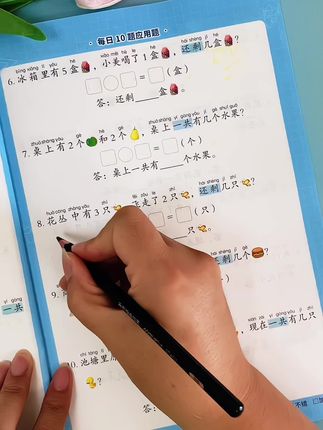 每日10题应用题
bīng xiāng lǐ yǒu hé xiǎo měi hē le hé hái shèng jǐ hé
6. 冰箱里有5盒,小美喝了1盒,还剩几盒?
□○□=□(盒)
答:还剩____盒。
zhuō shàng yǒu gè hé gè zhuō shàng yí gòng yǒu jǐ gè shuǐ guǒ
7. 桌上有2个和2个,桌上一共有几个水果?
□○□=□(个)
答:桌上一共有____个水果。
huā cóng zhōng yǒu zhī fēi zǒu le zhī hái shèng jǐ zhī
8. 花丛中有3只,飞走了2只,还剩几只?
=□(只)
只。
hái shèng jǐ gè
9.
还剩几个?
yí gòng
一共
xiàn zài yí gòng yǒu jǐ zhī
,现在一共有几只
chí táng lǐ
10. 池塘里
?
答: